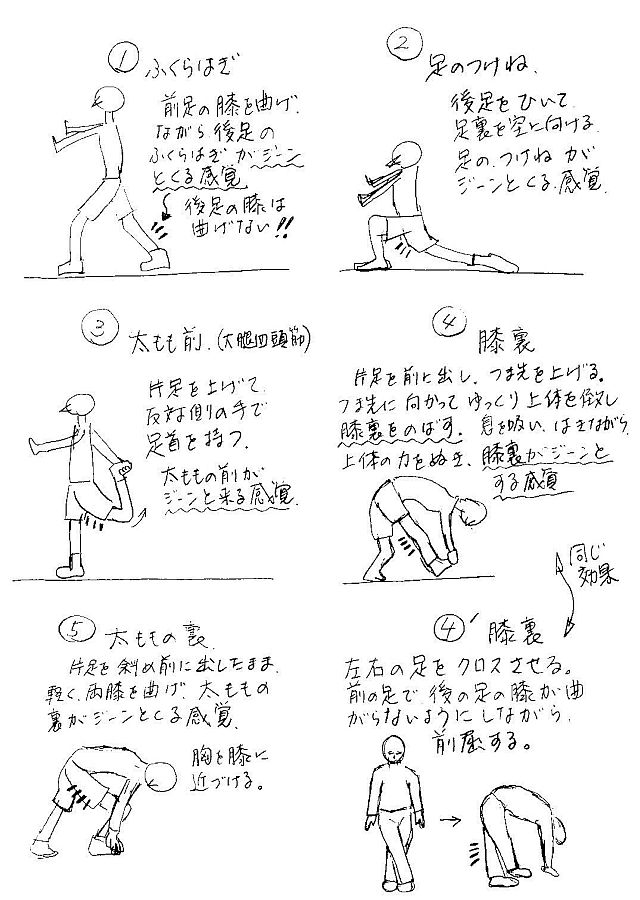 ① ふくらはぎ
前足の膝を曲げ
ながら後足の
ふくらはぎがジーン
とくる感覚
後足の膝は
曲げない!!
② 足のつけね、
後足をひいて、
足裏を空に向ける。
足の、つけねが
ジーンとくる感覚
③ 太もも前.(大腿四頭筋)
片足を上げて、
反対側の手で
足首を持つ.
太ももの前が
ジーンと来る感覚.
④ 膝裏
片足を前に出し、つま先を上げる。
つま先に向かってゆっくり上体を倒し
膝裏をのばす. 息を吸い、はきながら,
上体の力をぬき、膝裏がジーンと
する感覚
同じ
効果
⑤ 太ももの裏.
片足を斜め前に出したまま、
軽く両膝を曲げ、太ももの
裏がジーンとくる感覚.
胸を膝に
近づける。
④' 膝裏
左右の足をクロスさせる。
前の足で、後の足の膝が曲
がらないようにしながら、
前屈する。